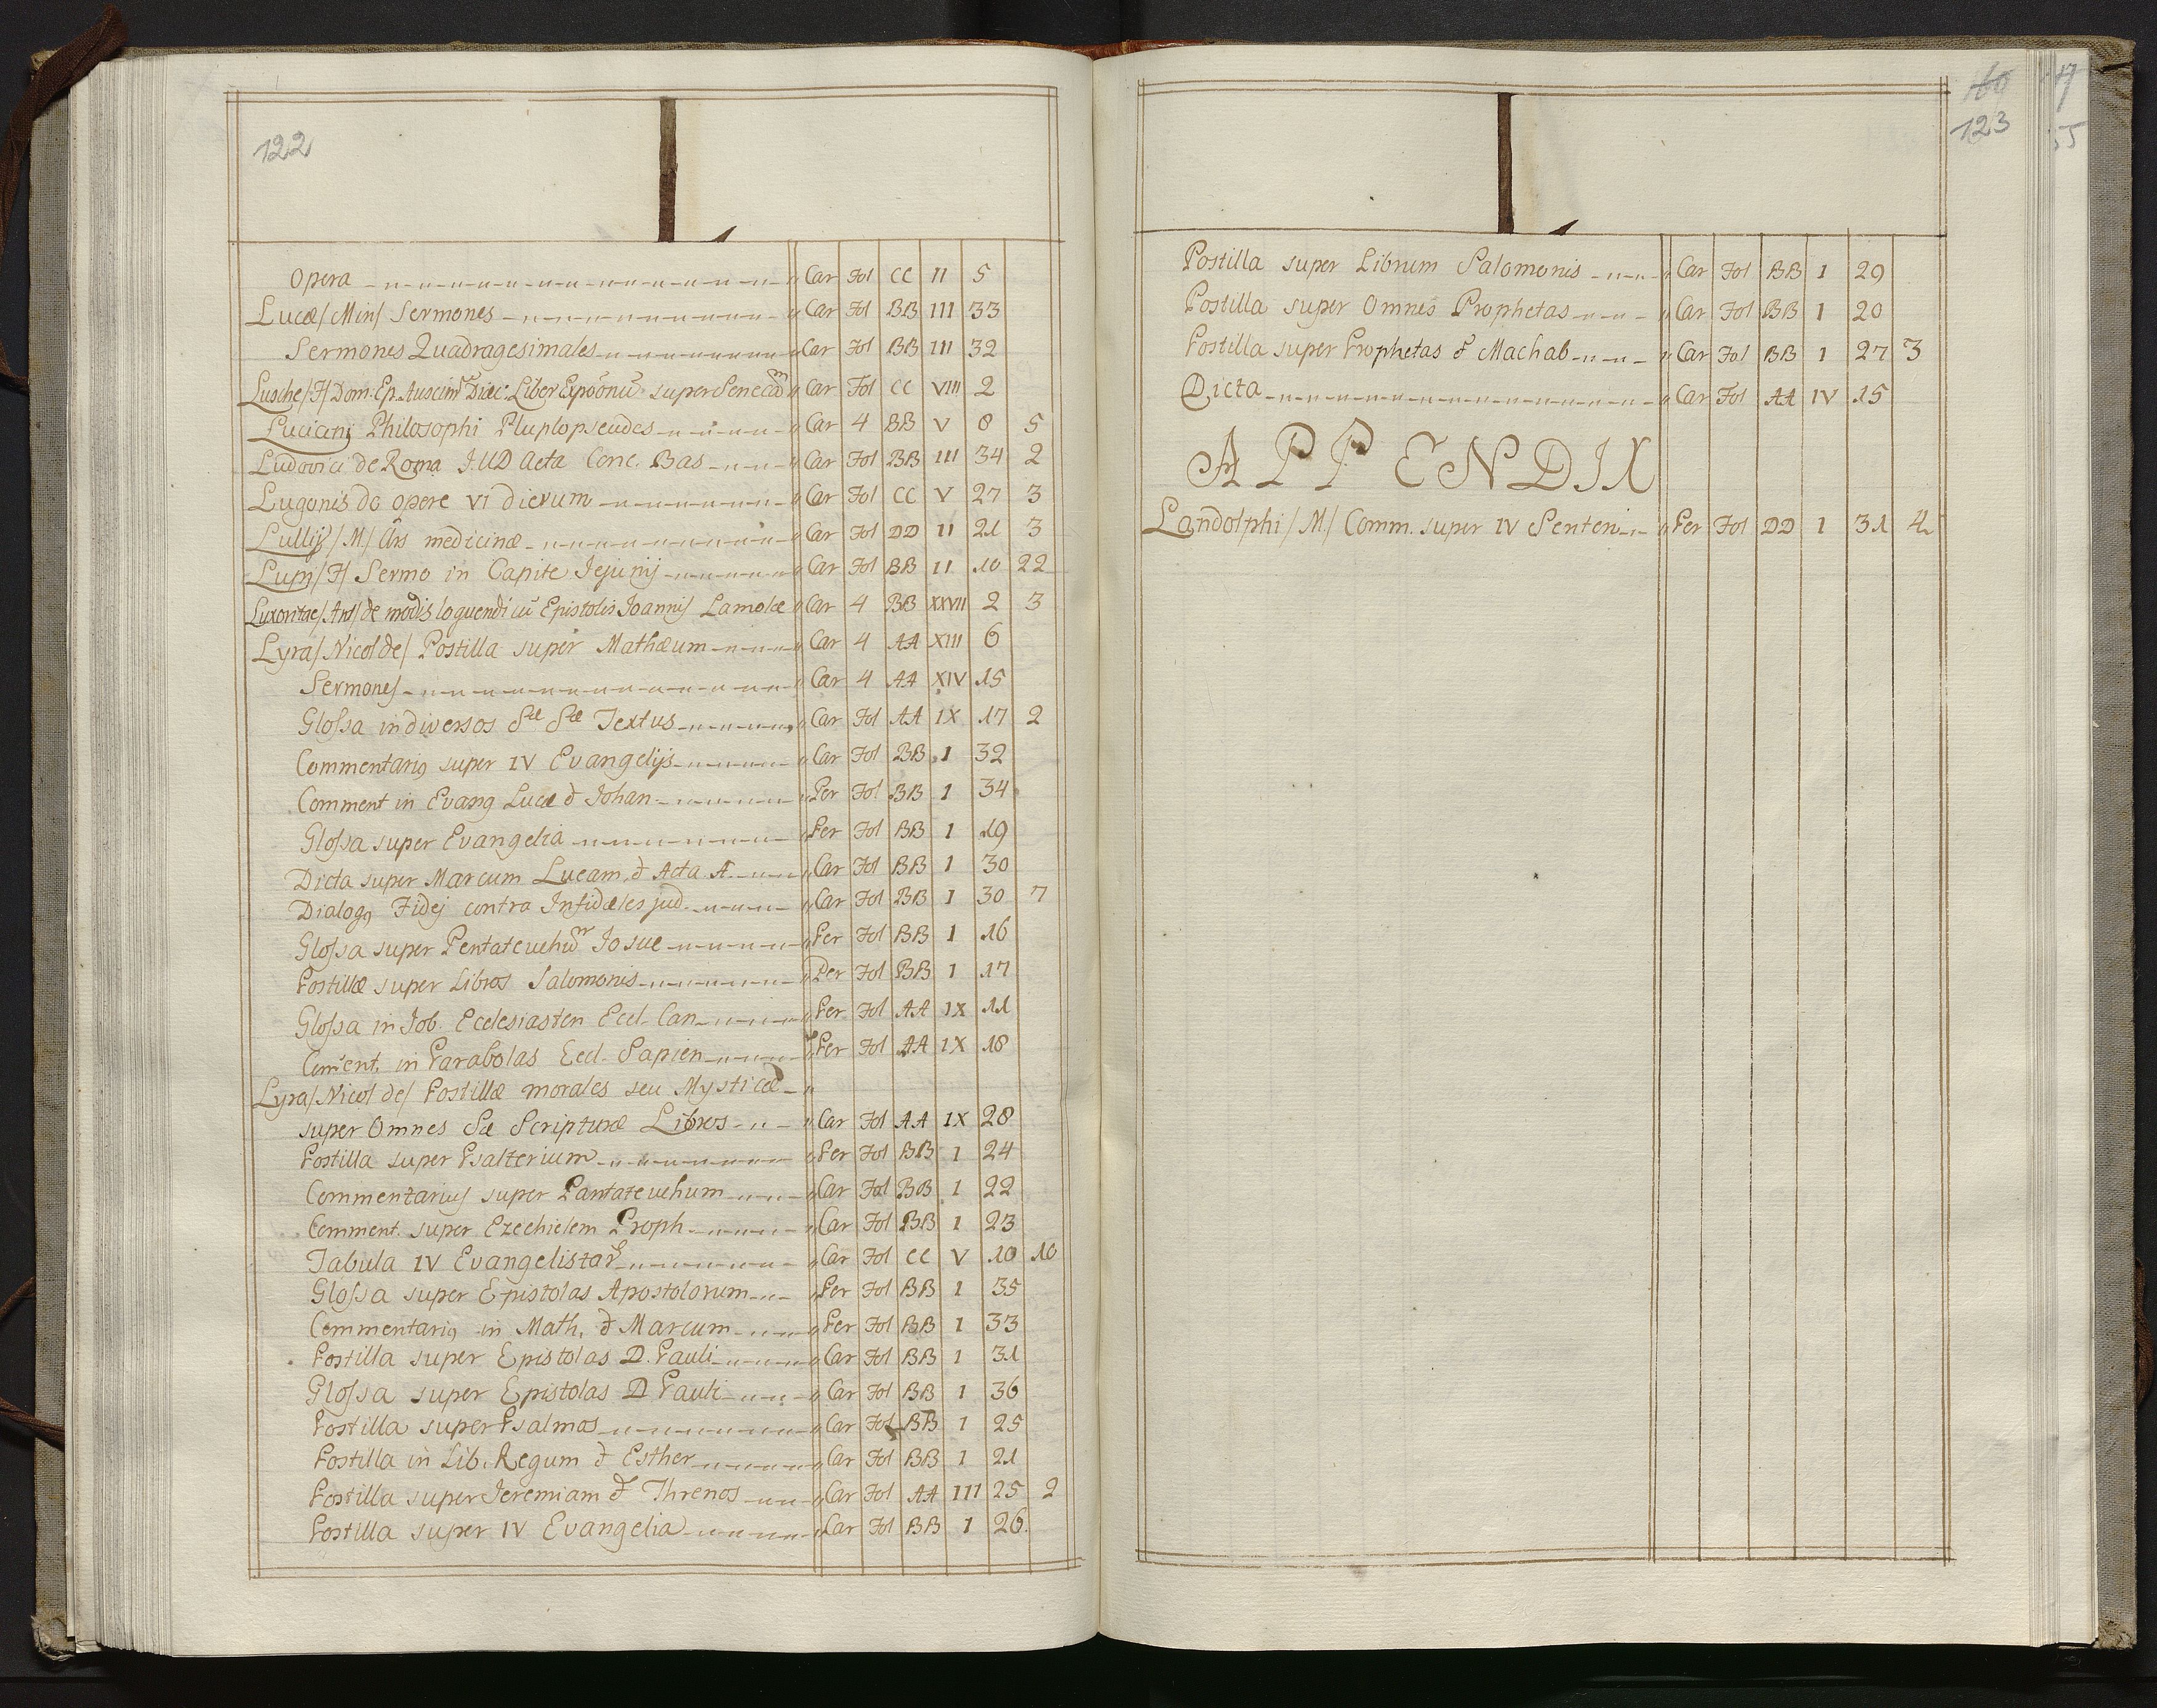 122
L
Opera Car Fol CC II 5
Lucæ/Min/ Sermones Car Fol BB III 33
Sermones Quadragesimales Car Fol BB III 32
Lusche/F/ Dom. Ep. super Senecam Car Fol CC VIII 2
Luciani Philosophi Pluplopseudes Car 4 BB V 8 5
Ludovici de Roma J.U.D Acta Conc. Bas Car Fol BB III 34 2
Lugonis de opere VI dierum Car Fol CC V 27 3
Lullij/M/ Ars medicinæ Car Fol DD II 21 3
Lupi/F/ Sermo in Capite Jejunij Car Fol BB II 10 22
Luxoritae/Ant/ de modis loquendi cū Epistolis Joannis Lamolæ Car 4 BB XXVII 2 3
Lyra/Nicol de/ Postilla super Mathæum Car 4 AA XIII 6
Sermones Car 4 AA XIV 15
Glossa in diversos Stæ Stæ Textus Car Fol AA IX 17 2
Commentariq super IV Evangelijs Car Fol BB I 32
Comment in Evang Lucæ & Johan Per Fol BB I 34
Glossa super Evangelia Per Fol BB I 19
Dicta super Marcum Lucam, & Acta A. Car Fol BB I 30
Dialogq Fidej contra Infidæles jud. Car Fol BB I 30 7
Glossa super Pentateuchū Josue Per Fol BB I 16
Postillæ super Libros Salomonis Per Fol BB I 17
Glossa in Job. Ecclesiasten Eccl. Can Per Fol AA IX 11
Com̄ent. in Parabolas Eccl. Sapien Per Fol AA IX 18
Lyra/Nicol de/ Postillæ morales seu Mysticæ
super Omnes Sæ Scripturæ Libros Car Fol AA IX 28
Postilla super Psalterium Per Fol BB I 24
Commentarius super Pantateuchum Car Fol BB I 22
Comment. super Ezechielem Proph Car Fol BB I 23
Tabula IV Evangelistar Car Fol CC V 10 10
Glossa super Epistolas Apostolorum Per Fol BB I 35
Commentariq in Math. & Marcum Per Fol BB I 33
Postilla super Epistolas D. Pauli Car Fol BB I 31
Glossa super Epistolas D Pauli Car Fol BB I 36
Postilla super Psalmos Car Fol BB I 25
Postilla in Lib. Regum & Esther Car Fol BB I 21
Postilla super Jeremiam & Threnos Car Fol AA III 25 2
Postilla super IV Evangelia Car Fol BB I 26.
160
123
L
Postilla super Librum Salomonis Car Fol BB I 29
Postilla super Omnes Prophetas Car Fol BB I 20
Postilla super Prophetas & Machab Car Fol BB I 27 3
Dicta Car Fol AA IV 15
APPENDIX
Landolphi/M/ Comm. super IV Senten Per Fol DD I 31 4